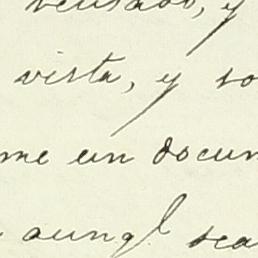 vista, y so
me un docum
aunq.l sea